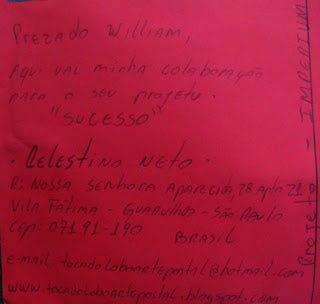 Prezado William,
Aqui vai minha colaboração
para o seu projeto.
"SUCESSO"
• Celestino Neto •
R: Nossa Senhora Aparecida, 28 apto 21 D
Vila Fátima - Guarulhos - São Paulo
Cep: 07191-190 BRASIL
e-mail tocadolaboartepostal@hotmail.com
www.tocadolaboartepostal.blogspot.com
Projeto - IMPERIUM